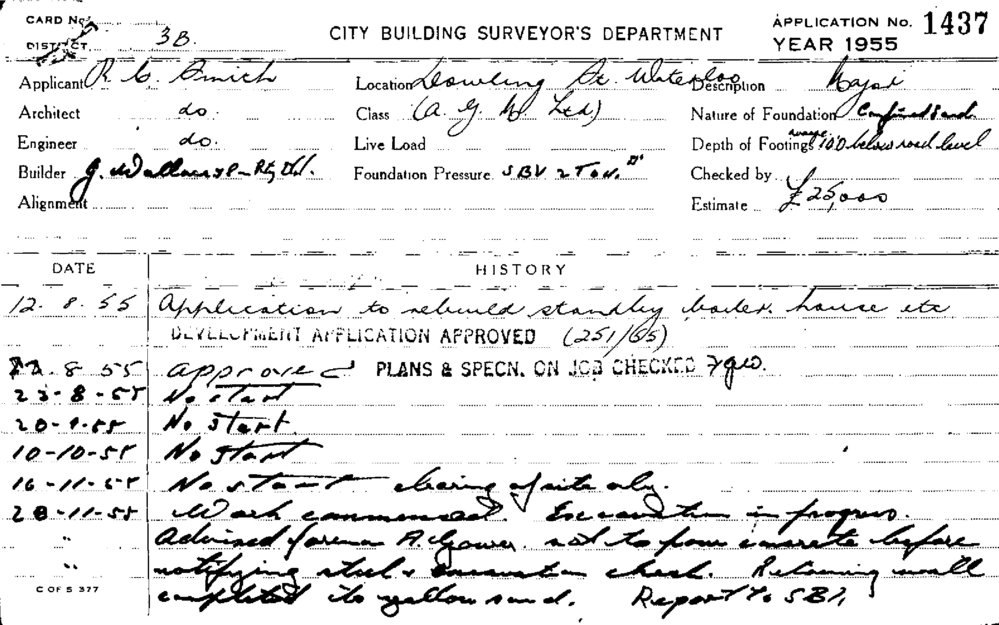 CARD No.
DISTRICT 3B.
CITY BUILDING SURVEYOR'S DEPARTMENT
APPLICATION No. 1437
YEAR 1955
Applicant R. C. Smith Location Dowling St. Waterloo Description Major
Architect do. Class (A. G. M. Ltd.) Nature of Foundation Confined Sand
Engineer do. Live Load Depth of Footings average 10'0 below road level
Builder J. Wallace Pty Ltd. Foundation Pressure SBV 2 TON. Checked by
Alignment Estimate £25,000
DATE HISTORY
12. 8. 55 Application to rebuild standby boiler house etc
DEVELOPMENT APPLICATION APPROVED (251/55)
8 55 approved PLANS & SPECN. ON JOB CHECKED
23-8-55 No start
20-9-55 No Start.
10-10-55 No Start
16-11-55 No start clearing of site only.
28-11-55 Work commenced. Excavation in progress.
" Advised foreman A. Gower not to pour concrete before
" notifying steel & excavation check. Retaining wall
completed to yellow sand. Report to SBI
C OF S 377